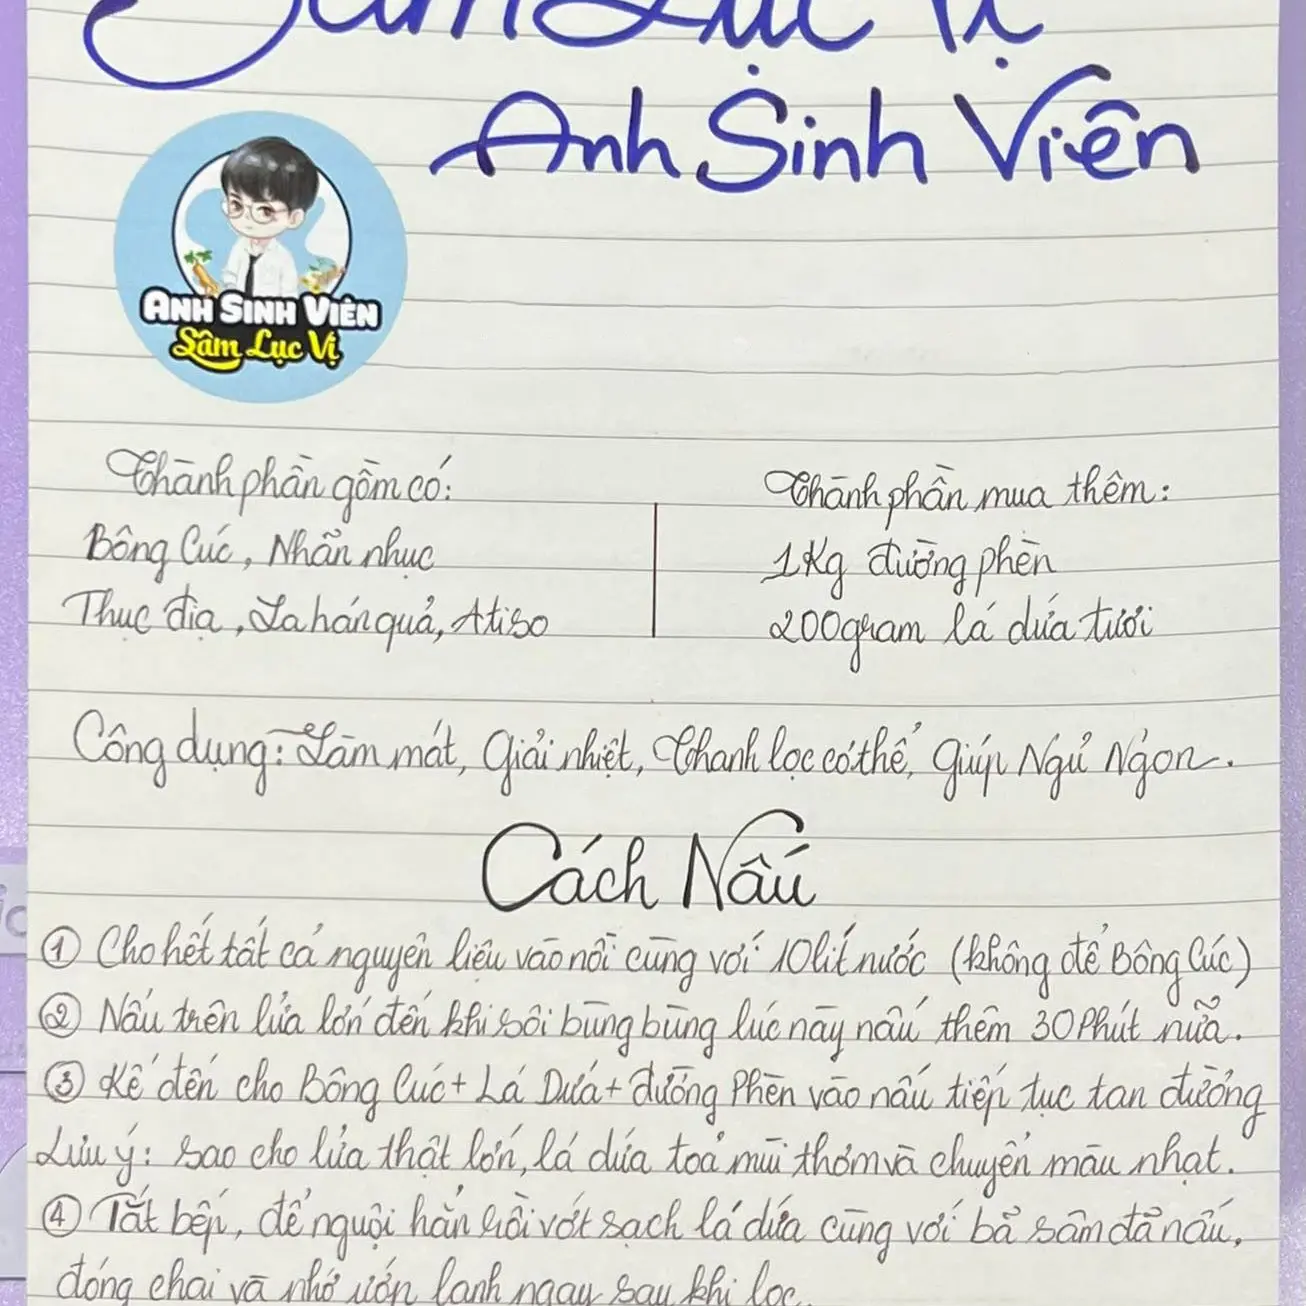 Sâm Lục Vị
Anh Sinh Viên
ANH SINH VIÊN
Sâm Lục Vị
Thành phần gồm có:
Bông Cúc, Nhãn nhục
Thục địa, La hán quả, Atiso
Thành phần mua thêm:
1Kg đường phèn
200gram lá dứa tươi
Công dụng: Làm mát, Giải nhiệt, Thanh lọc cơ thể, Giúp Ngủ Ngon.
Cách Nấu
① Cho hết tất cả nguyên liệu vào nồi cùng với 10lít nước (không để Bông Cúc)
② Nấu trên lửa lớn đến khi sôi bùng bùng lúc này nấu thêm 30 Phút nữa.
③ Kế đến cho Bông Cúc + Lá Dứa + đường Phèn vào nấu tiếp tục tan đường
Lưu ý: sao cho lửa thật lớn, lá dứa toả mùi thơm và chuyển màu nhạt.
④ Tắt bếp, để nguội hẳn rồi vớt sạch lá dứa cùng với bã sâm đã nấu,
đóng chai và nhớ ướp lạnh ngay sau khi lọc.